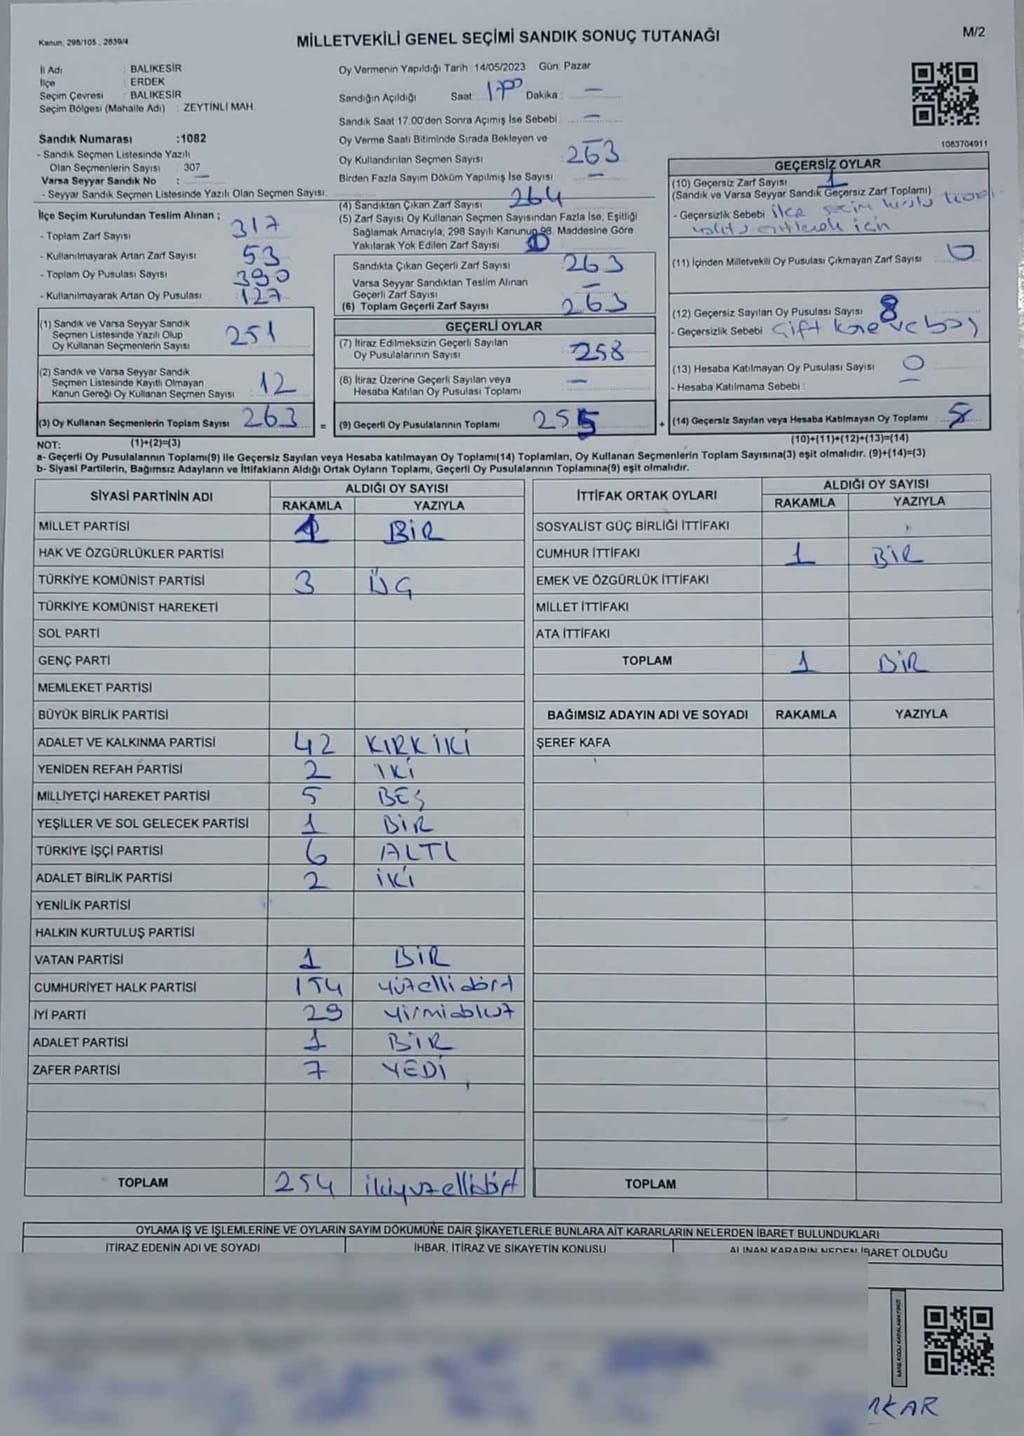 Kanun: 298/105, 2839/4
MİLLETVEKİLİ GENEL SEÇİMİ SANDIK SONUÇ TUTANAĞI
M/2
İl Adı : BALIKESİR
İlçe : ERDEK
Seçim Çevresi : BALIKESİR
Seçim Bölgesi (Mahalle Adı) : ZEYTİNLİ MAH.
Sandık Numarası :1082
- Sandık Seçmen Listesinde Yazılı
Olan Seçmenlerin Sayısı : 307
Varsa Seyyar Sandık No : —
- Seyyar Sandık Seçmen Listesinde Yazılı Olan Seçmen Sayısı:
Oy Vermenin Yapıldığı Tarih :14/05/2023 Gün: Pazar
Sandığın Açıldığı Saat 17⁰⁰ Dakika : —
Sandık Saat 17.00'den Sonra Açımış İse Sebebi : —
Oy Verme Saati Bitiminde Sırada Bekleyen ve
Oy Kullandırılan Seçmen Sayısı : 263
Birden Fazla Sayım Döküm Yapılmış İse Sayısı : —
(4) Sandıktan Çıkan Zarf Sayısı : 264
(5) Zarf Sayısı Oy Kullanan Seçmen Sayısından Fazla İse, Eşitliği
Sağlamak Amacıyla, 298 Sayılı Kanunun 98. Maddesine Göre
Yakılarak Yok Edilen Zarf Sayısı :
1083704911
İlçe Seçim Kurulundan Teslim Alınan ;
- Toplam Zarf Sayısı : 317
- Kullanılmayarak Artan Zarf Sayısı : 53
- Toplam Oy Pusulası Sayısı : 390
- Kullanılmayarak Artan Oy Pusulası : 127
(1) Sandık ve Varsa Seyyar Sandık
Seçmen Listesinde Yazılı Olup
Oy Kullanan Seçmenlerin Sayısı : 251
(2) Sandık ve Varsa Seyyar Sandık
Seçmen Listesinde Kayıtlı Olmayan
Kanun Gereği Oy Kullanan Seçmen Sayısı : 12
(3) Oy Kullanan Seçmenlerin Toplam Sayısı : 263
Sandıkta Çıkan Geçerli Zarf Sayısı : 263
Varsa Seyyar Sandıktan Teslim Alınan
Geçerli Zarf Sayısı : —
(6) Toplam Geçerli Zarf Sayısı : 263
GEÇERLİ OYLAR
(7) İtiraz Edilmeksizin Geçerli Sayılan
Oy Pusulalarının Sayısı : 258
(8) İtiraz Üzerine Geçerli Sayılan veya
Hesaba Katılan Oy Pusulası Toplamı : —
= (9) Geçerli Oy Pusulalarının Toplamı : 255
GEÇERSİZ OYLAR
(10) Geçersiz Zarf Sayısı : 1
(Sandık ve Varsa Seyyar Sandık Geçersiz Zarf Toplamı)
- Geçersizlik Sebebi ilçe seçim
için
(11) İçinden Milletvekili Oy Pusulası Çıkmayan Zarf Sayısı : 0
(12) Geçersiz Sayılan Oy Pusulası Sayısı : 8
- Geçersizlik Sebebi Çift ve boş
(13) Hesaba Katılmayan Oy Pusulası Sayısı : 0
- Hesaba Katılmama Sebebi : —
+ (14) Geçersiz Sayılan veya Hesaba Katılmayan Oy Toplamı : 8
NOT: (1)+(2)=(3)
(10)+(11)+(12)+(13)=(14)
a- Geçerli Oy Pusulalarının Toplamı(9) ile Geçersiz Sayılan veya Hesaba katılmayan Oy Toplamı(14) Toplamları, Oy Kullanan Seçmenlerin Toplam Sayısına(3) eşit olmalıdır. (9)+(14)=(3)
b- Siyasi Partilerin, Bağımsız Adayların ve İttifakların Aldığı Ortak Oyların Toplamı, Geçerli Oy Pusulalarının Toplamına(9) eşit olmalıdır.
SİYASİ PARTİNİN ADI
ALDIĞI OY SAYISI
RAKAMLA YAZIYLA
MİLLET PARTİSİ 1 BİR
HAK VE ÖZGÜRLÜKLER PARTİSİ
TÜRKİYE KOMÜNİST PARTİSİ 3 ÜÇ
TÜRKİYE KOMÜNİST HAREKETİ
SOL PARTİ
GENÇ PARTİ
MEMLEKET PARTİSİ
BÜYÜK BİRLİK PARTİSİ
ADALET VE KALKINMA PARTİSİ 42 KIRKİKİ
YENİDEN REFAH PARTİSİ 2 İKİ
MİLLİYETÇİ HAREKET PARTİSİ 5 BEŞ
YEŞİLLER VE SOL GELECEK PARTİSİ 1 BİR
TÜRKİYE İŞÇİ PARTİSİ 6 ALTI
ADALET BİRLİK PARTİSİ 2 İKİ
YENİLİK PARTİSİ
HALKIN KURTULUŞ PARTİSİ
VATAN PARTİSİ 1 BİR
CUMHURİYET HALK PARTİSİ 154 yüzellidört
İYİ PARTİ 29 yirmidokuz
ADALET PARTİSİ 1 BİR
ZAFER PARTİSİ 7 YEDİ
TOPLAM 254 ikiyuzellidört
İTTİFAK ORTAK OYLARI
ALDIĞI OY SAYISI
RAKAMLA YAZIYLA
SOSYALİST GÜÇ BİRLİĞİ İTTİFAKI
CUMHUR İTTİFAKI 1 BİR
EMEK VE ÖZGÜRLÜK İTTİFAKI
MİLLET İTTİFAKI
ATA İTTİFAKI
TOPLAM 1 BİR
BAĞIMSIZ ADAYIN ADI VE SOYADI RAKAMLA YAZIYLA
ŞEREF KAFA
TOPLAM
OYLAMA İŞ VE İŞLEMLERİNE VE OYLARIN SAYIM DÖKÜMÜNE DAİR ŞİKAYETLERLE BUNLARA AİT KARARLARIN NELERDEN İBARET BULUNDUKLARI
İTİRAZ EDENİN ADI VE SOYADI
İHBAR, İTİRAZ VE ŞİKAYETİN KONUSU
ALINAN KARARIN NEDEN İBARET OLDUĞU